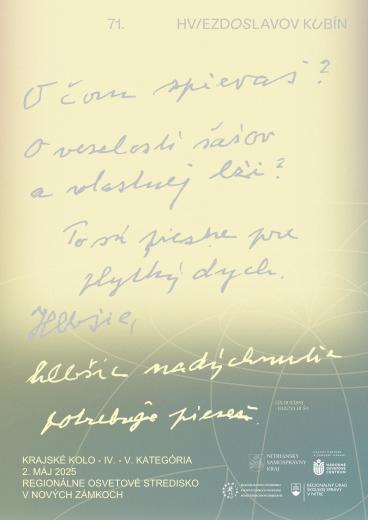 71. HVIEZDOSLAVOV KUBÍN
O čom spievaš?
O veselosti šašov
a vlastnej lži?
To sú piesne pre
plytký dych.
Hlbšie,
hlbšie nadýchnutie
potrebuje pieseň.
NITRIANSKY
SAMOSPRÁVNY
KRAJ
NÁRODNÉ
OSVETOVÉ
CENTRUM
KRAJSKÉ KOLO - IV. - V. KATEGÓRIA
2. MÁJ 2025
REGIONÁLNE OSVETOVÉ STREDISKO
V NOVÝCH ZÁMKOCH
REGIONÁLNY ÚRAD
ŠKOLSKEJ SPRÁVY
V NITRE